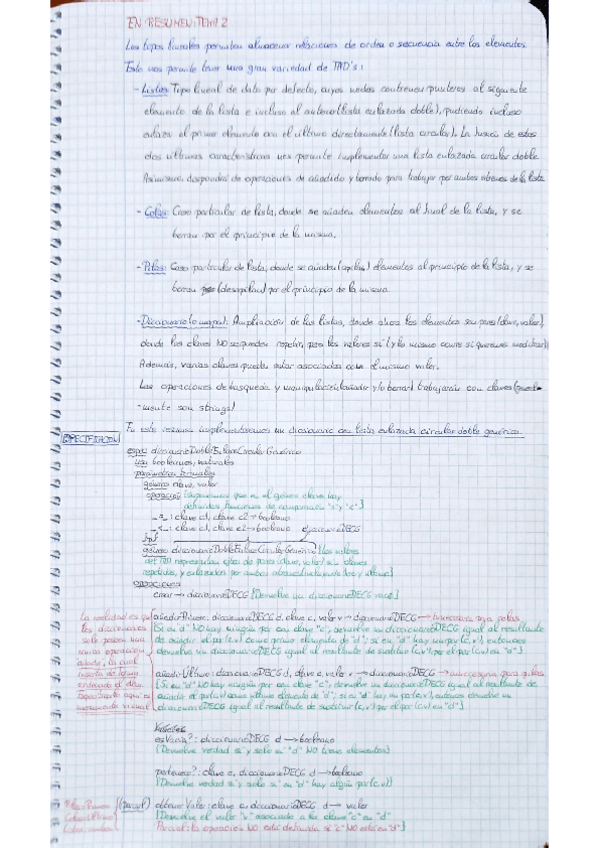 EN RESUMEN: TEMA 2
Los tipos lineales permiten almacenar relaciones de orden o secuencia entre los elementos.
Esto nos permite tener una gran variedad de TAD's:
- Listas: Tipo lineal de dato por defecto, cuyos nodos contienen punteros al siguiente
elemento de la lista e incluso al anterior (lista enlazada doble), pudiendo incluso
enlazar el primer elemento con el último directamente (lista circular). La fusión de estas
dos últimas características nos permite implementar una lista enlazada circular doble.
Asimismo, dispondrá de operaciones de añadido y borrado para trabajar por ambos extremos de la lista
- Colas: Caso particular de lista, donde se añaden elementos al final de la lista, y se
borran por el principio de la misma.
- Pilas: Caso particular de lista, donde se añaden (apilan) elementos al principio de la lista, y se
borran (desapilan) por el principio de la misma.
- Diccionario (o mapa): Ampliación de las listas, donde ahora los elementos son pares (clave, valor),
donde las claves NO se pueden repetir, pero los valores sí
Además, varias claves pueden estar asociadas con el mismo valor.
Las operaciones de búsqueda y trabajarán con claves
-mente son strings)
En este resumen implementaremos un diccionario con lista enlazada circular doble genérico.
ESPECIFICACIÓN
espec diccionarioDobleEnlaceCircularGenérico
usa booleanos, naturales
parámetros formales
género clave, valor
operación {Suponemos que en el género clave hay
definidas funciones de comparación
_=_: clave c1, clave c2 → booleano
_<_: clave c1, clave c2 → booleano
fpf
género diccionarioDobleEnlaceCircularGenérico {Los valores
del TAD representan de pares (clave, valor) sin claves
repetidas, y enlazados por ambos
operaciones
crear: → diccionarioDECG {Devuelve un diccionarioDECG vacío}
La realidad es que
los diccionarios
solo poseen una
única operación
añadir, la cual
añadirPrimero: diccionarioDECG d, clave c, valor v → diccionarioDECG → necesaria para pilas
{Si en "d" NO hay ningún par con clave "c", devuelve un diccionarioDECG igual al resultante
de añadir el par (c,v) como primer elemento de "d"; si en "d" hay un par, entonces
devuelve un diccionarioDECG igual al resultante de sustituir por el par (c,v) en "d"}
añadirÚltimo: diccionarioDECG d, clave c, valor v → diccionarioDECG → necesaria para colas
{Si en "d" NO hay ningún par con clave "c", devuelve un diccionarioDECG igual al resultante de
añadir el par (c,v) como último elemento de "d"; si en "d" hay un par, entonces devuelve un
diccionarioDECG igual al resultante de sustituir por el par (c,v) en "d"}
esVacío?: diccionarioDECG d → booleano
{Devuelve verdad si y solo si "d" NO tiene elementos}
pertenece?: clave c, diccionarioDECG d → booleano
{Devuelve verdad si y solo si en "d" hay algún par (c,v)}
(parcial) obtenerValor: clave c, diccionarioDECG d → valor
{Devuelve el valor "v" asociado a la clave "c" en "d"
Parcial: la operación NO está definida si "c" NO está en "d"}